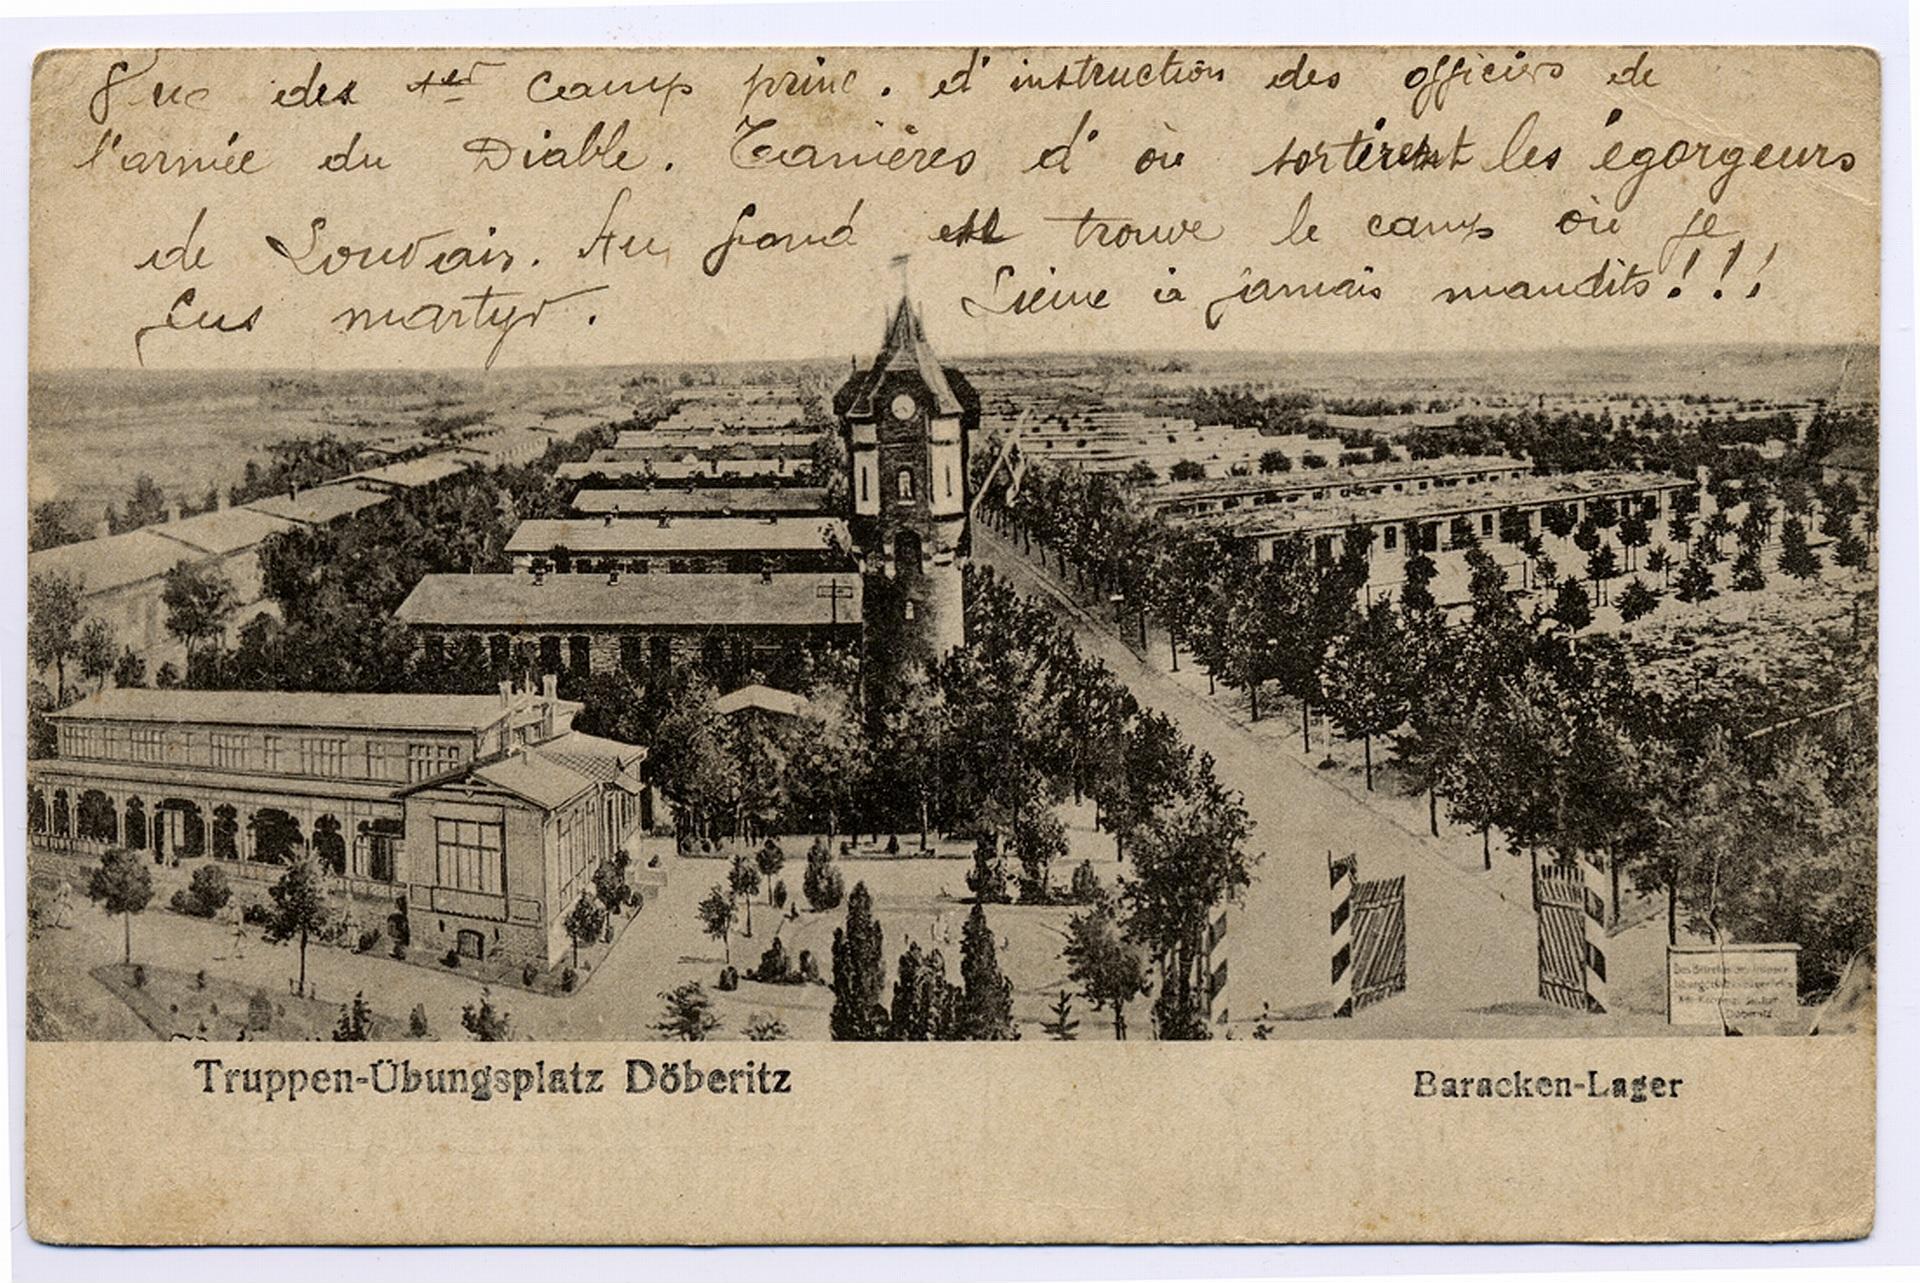 Vue des 1er camp princ. d'instruction des officiers de
l'armée du Diable. Tanières d'où sortirent les égorgeurs
de Louvain. Au fond est trouve le camp où je
fus martyr. Lieux à jamais maudits!!!
Truppen-Übungsplatz Döberitz
Baracken-Lager
Das Betreten des
Döberitz